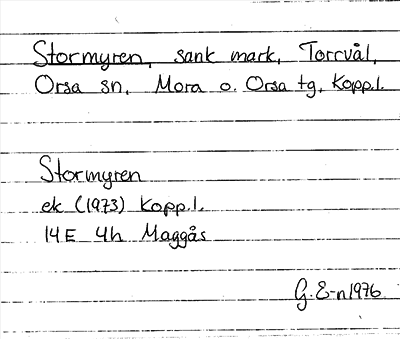 Stormyren, sank mark, Torrvål,
Orsa sn, Mora o. Orsa tg, Kopp.l.
Stormyren
ek (1973) Kopp.l.
14E 4h Maggås
G. E-n 1976